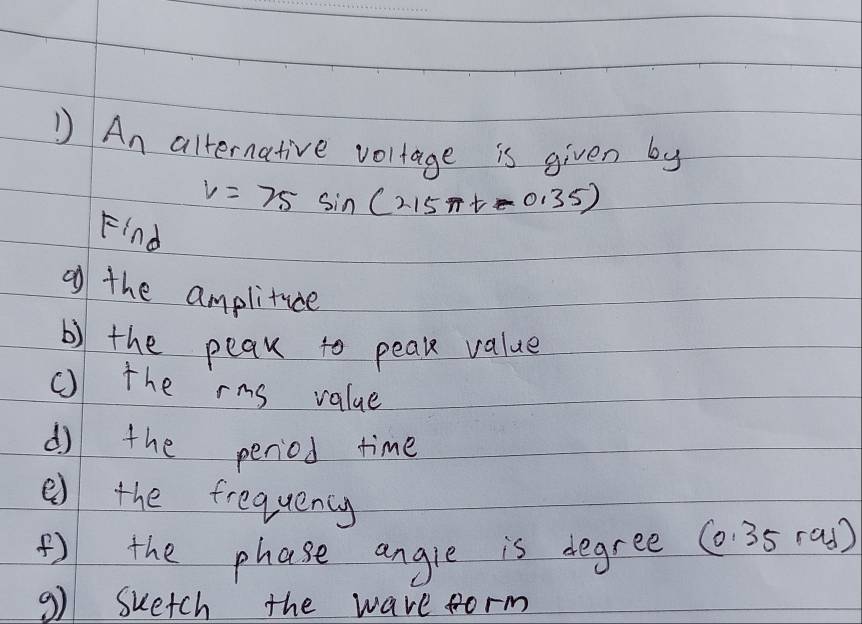 1) An alternative voltage is given by
v = 75 sin (215πt - 0.35)
Find
a) the amplitude
b) the peak to peak value
c) the rms value
d.) the period time
e) the frequency
f) the phase angle is degree (0.35 rad)
g) Sketch the wave form